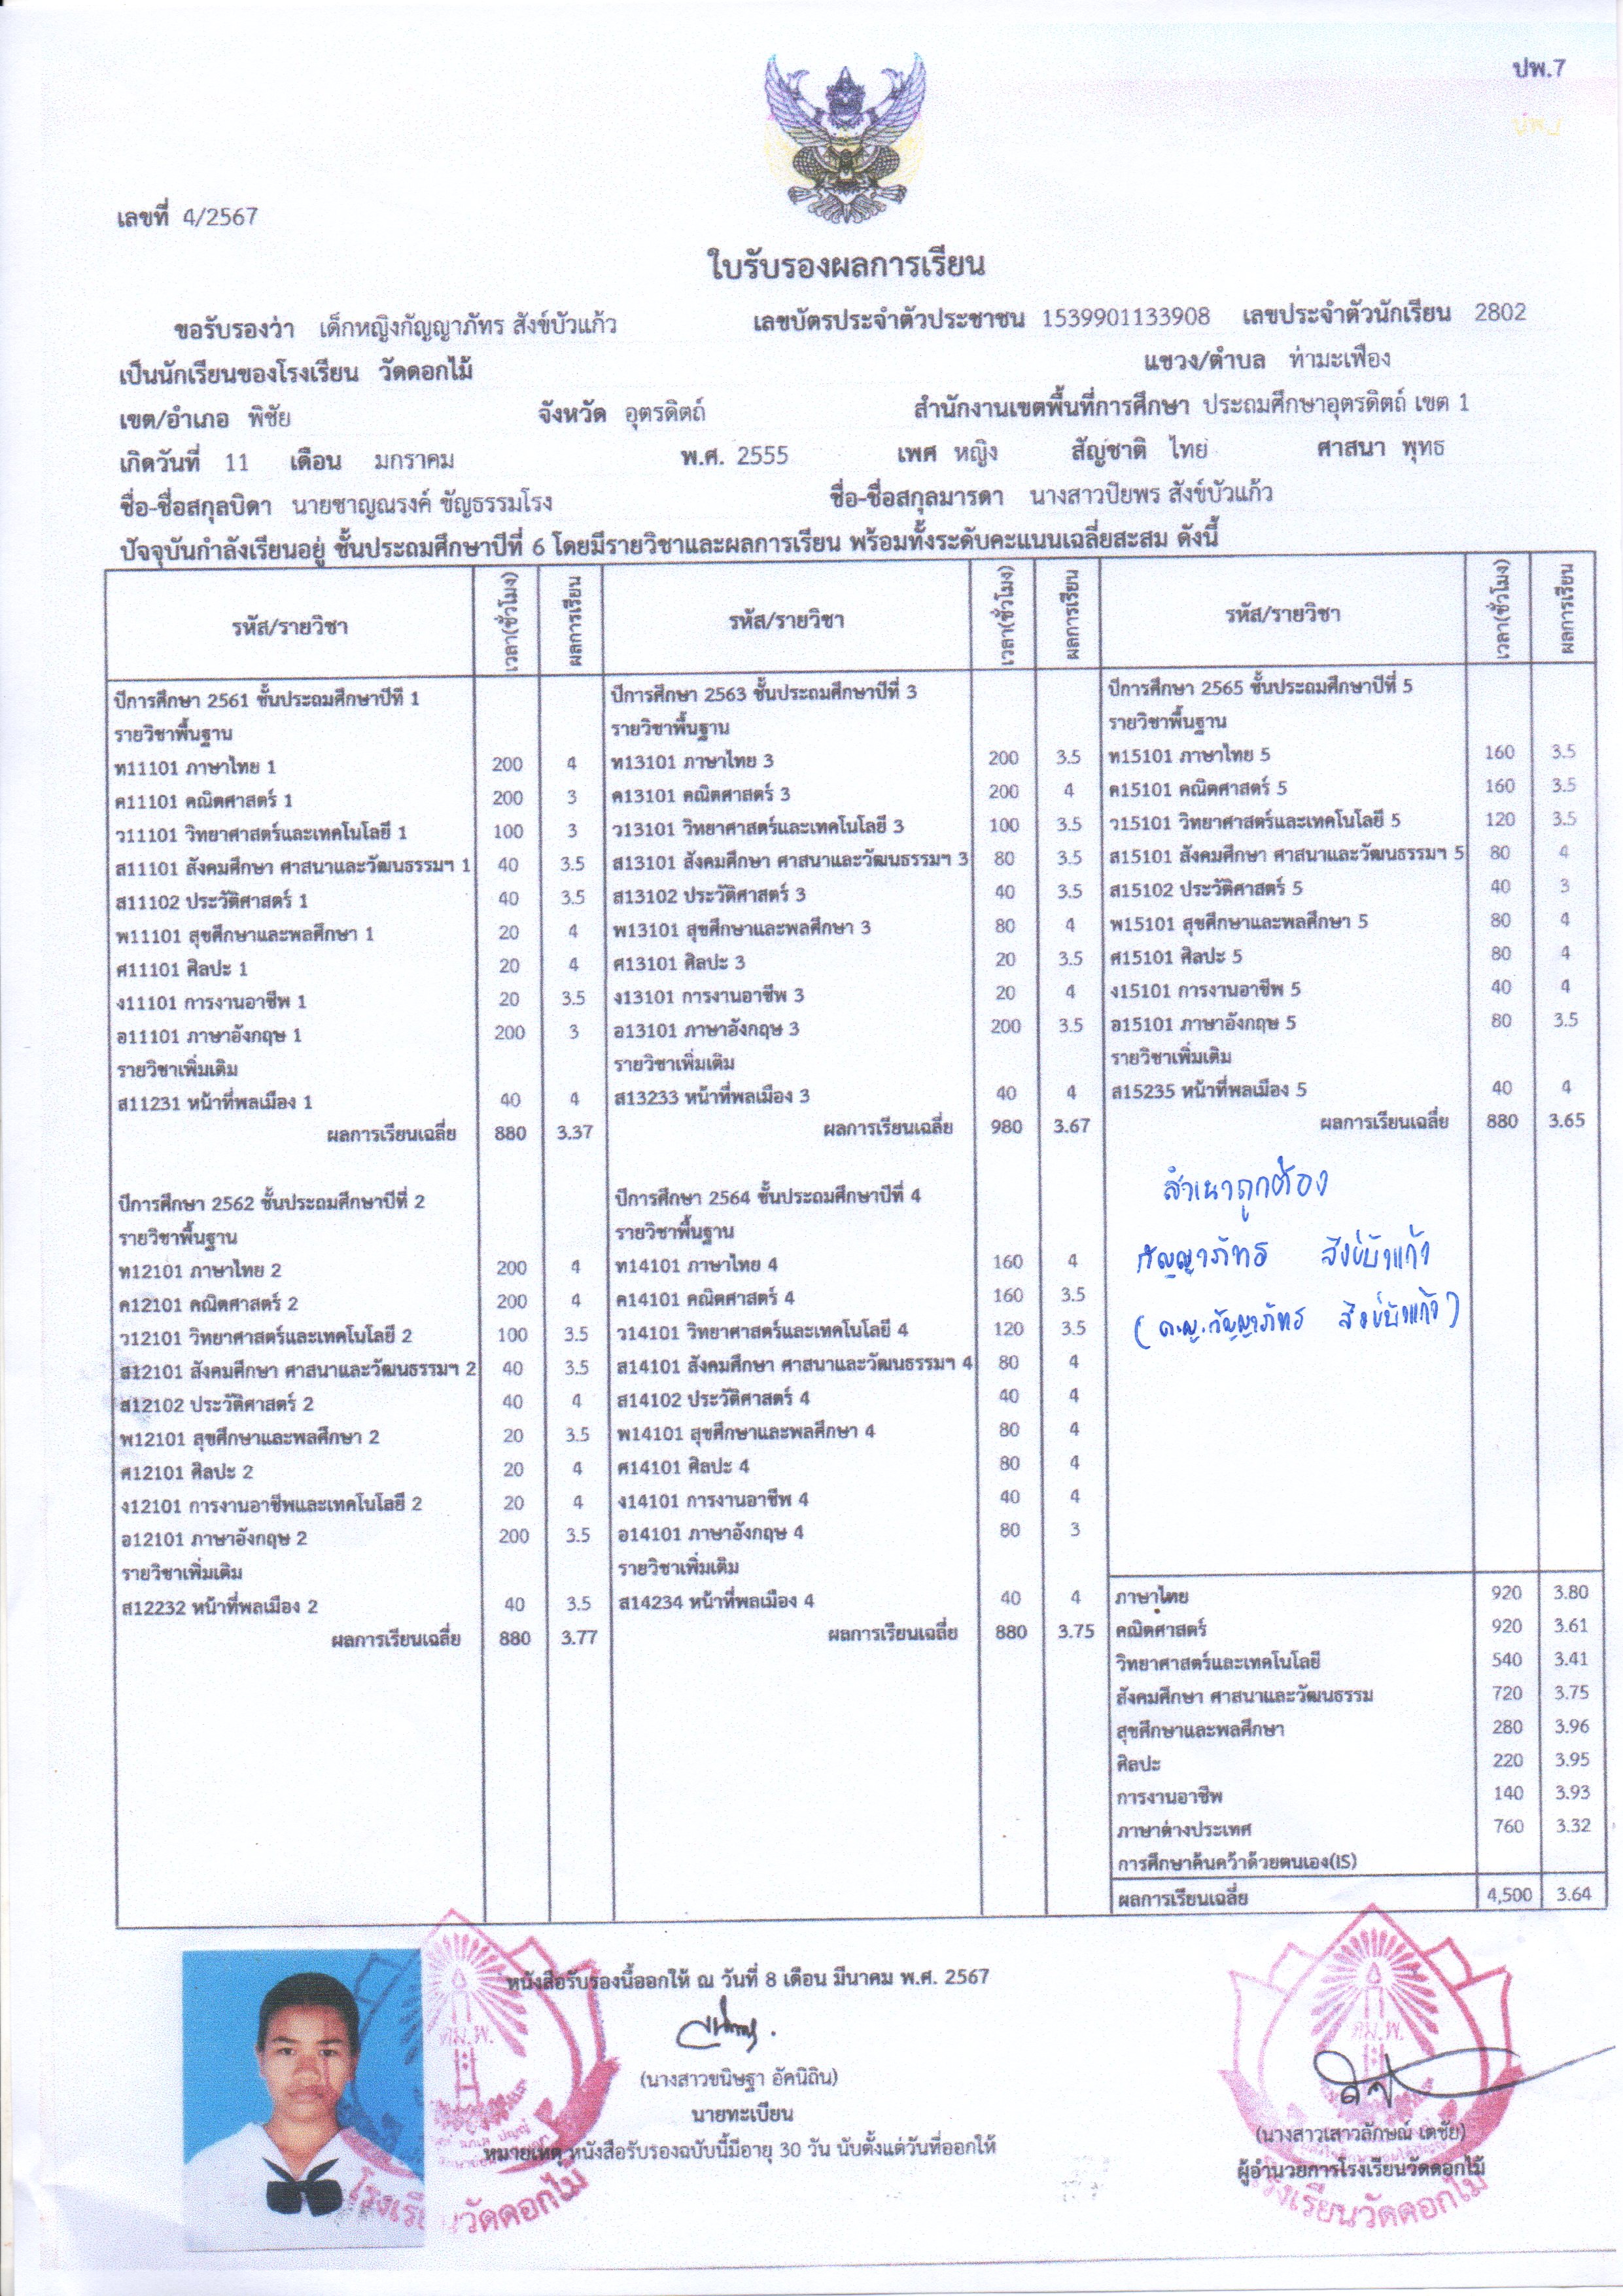 ปพ.7
เลขที่ 4/2567
ใบรับรองผลการเรียน
ขอรับรองว่า เด็กหญิงกัญญาภัทร สังข์บัวแก้ว เลขบัตรประจำตัวประชาชน 1539901133908 เลขประจำตัวนักเรียน 2802
เป็นนักเรียนของโรงเรียน วัดดอกไม้ แขวง/ตำบล ท่ามะเฟือง
เขต/อำเภอ พิชัย จังหวัด อุตรดิตถ์ สำนักงานเขตพื้นที่การศึกษา ประถมศึกษาอุตรดิตถ์ เขต 1
เกิดวันที่ 11 เดือน มกราคม พ.ศ. 2555 เพศ หญิง สัญชาติ ไทย ศาสนา พุทธ
ชื่อ-ชื่อสกุลบิดา นายชาญณรงค์ ขัญธรรมโรง ชื่อ-ชื่อสกุลมารดา นางสาวปิยพร สังข์บัวแก้ว
ปัจจุบันกำลังเรียนอยู่ ชั้นประถมศึกษาปีที่ 6 โดยมีรายวิชาและผลการเรียน พร้อมทั้งระดับคะแนนเฉลี่ยสะสม ดังนี้
รหัส/รายวิชา เวลา(ชั่วโมง) ผลการเรียน รหัส/รายวิชา เวลา(ชั่วโมง) ผลการเรียน รหัส/รายวิชา เวลา(ชั่วโมง) ผลการเรียน
ปีการศึกษา 2561 ชั้นประถมศึกษาปีที่ 1
รายวิชาพื้นฐาน
ท11101 ภาษาไทย 1 200 4
ค11101 คณิตศาสตร์ 1 200 3
ว11101 วิทยาศาสตร์และเทคโนโลยี 1 100 3
ส11101 สังคมศึกษา ศาสนาและวัฒนธรรมฯ 1 40 3.5
ส11102 ประวัติศาสตร์ 1 40 3.5
พ11101 สุขศึกษาและพลศึกษา 1 20 4
ศ11101 ศิลปะ 1 20 4
ง11101 การงานอาชีพ 1 20 3.5
อ11101 ภาษาอังกฤษ 1 200 3
รายวิชาเพิ่มเติม
ส11231 หน้าที่พลเมือง 1 40 4
ผลการเรียนเฉลี่ย 880 3.37
ปีการศึกษา 2562 ชั้นประถมศึกษาปีที่ 2
รายวิชาพื้นฐาน
ท12101 ภาษาไทย 2 200 4
ค12101 คณิตศาสตร์ 2 200 4
ว12101 วิทยาศาสตร์และเทคโนโลยี 2 100 3.5
ส12101 สังคมศึกษา ศาสนาและวัฒนธรรมฯ 2 40 3.5
ส12102 ประวัติศาสตร์ 2 40 4
พ12101 สุขศึกษาและพลศึกษา 2 20 3.5
ศ12101 ศิลปะ 2 20 4
ง12101 การงานอาชีพและเทคโนโลยี 2 20 4
อ12101 ภาษาอังกฤษ 2 200 3.5
รายวิชาเพิ่มเติม
ส12232 หน้าที่พลเมือง 2 40 3.5
ผลการเรียนเฉลี่ย 880 3.77
ปีการศึกษา 2563 ชั้นประถมศึกษาปีที่ 3
รายวิชาพื้นฐาน
ท13101 ภาษาไทย 3 200 3.5
ค13101 คณิตศาสตร์ 3 200 4
ว13101 วิทยาศาสตร์และเทคโนโลยี 3 100 3.5
ส13101 สังคมศึกษา ศาสนาและวัฒนธรรมฯ 3 80 3.5
ส13102 ประวัติศาสตร์ 3 40 3.5
พ13101 สุขศึกษาและพลศึกษา 3 80 4
ศ13101 ศิลปะ 3 20 3.5
ง13101 การงานอาชีพ 3 20 4
อ13101 ภาษาอังกฤษ 3 200 3.5
รายวิชาเพิ่มเติม
ส13233 หน้าที่พลเมือง 3 40 4
ผลการเรียนเฉลี่ย 980 3.67
ปีการศึกษา 2564 ชั้นประถมศึกษาปีที่ 4
รายวิชาพื้นฐาน
ท14101 ภาษาไทย 4 160 4
ค14101 คณิตศาสตร์ 4 160 3.5
ว14101 วิทยาศาสตร์และเทคโนโลยี 4 120 3.5
ส14101 สังคมศึกษา ศาสนาและวัฒนธรรมฯ 4 80 4
ส14102 ประวัติศาสตร์ 4 40 4
พ14101 สุขศึกษาและพลศึกษา 4 80 4
ศ14101 ศิลปะ 4 80 4
ง14101 การงานอาชีพ 4 40 4
อ14101 ภาษาอังกฤษ 4 80 3
รายวิชาเพิ่มเติม
ส14234 หน้าที่พลเมือง 4 40 4
ผลการเรียนเฉลี่ย 880 3.75
ปีการศึกษา 2565 ชั้นประถมศึกษาปีที่ 5
รายวิชาพื้นฐาน
ท15101 ภาษาไทย 5 160 3.5
ค15101 คณิตศาสตร์ 5 160 3.5
ว15101 วิทยาศาสตร์และเทคโนโลยี 5 120 3.5
ส15101 สังคมศึกษา ศาสนาและวัฒนธรรมฯ 5 80 4
ส15102 ประวัติศาสตร์ 5 40 3
พ15101 สุขศึกษาและพลศึกษา 5 80 4
ศ15101 ศิลปะ 5 80 4
ง15101 การงานอาชีพ 5 40 4
อ15101 ภาษาอังกฤษ 5 80 3.5
รายวิชาเพิ่มเติม
ส15235 หน้าที่พลเมือง 5 40 4
ผลการเรียนเฉลี่ย 880 3.65
สำเนาถูกต้อง
กัญญาภัทร สังข์บัวแก้ว
(ด.ญ.กัญญาภัทร สังข์บัวแก้ว)
ภาษาไทย 920 3.80
คณิตศาสตร์ 920 3.61
วิทยาศาสตร์และเทคโนโลยี 540 3.41
สังคมศึกษา ศาสนาและวัฒนธรรม 720 3.75
สุขศึกษาและพลศึกษา 280 3.96
ศิลปะ 220 3.95
การงานอาชีพ 140 3.93
ภาษาต่างประเทศ 760 3.32
การศึกษาค้นคว้าด้วยตนเอง(IS)
ผลการเรียนเฉลี่ย 4,500 3.64
หนังสือรับรองนี้ออกให้ ณ วันที่ 8 เดือน มีนาคม พ.ศ. 2567
(นางสาวขนิษฐา อัคนิถิน)
นายทะเบียน
หมายเหตุ หนังสือรับรองฉบับนี้มีอายุ 30 วัน นับตั้งแต่วันที่ออกให้
โรงเรียนวัดดอกไม้
ดม.พ.
(นางสาวเสาวลักษณ์ เตชัย)
ผู้อำนวยการโรงเรียนวัดดอกไม้
โรงเรียนวัดดอกไม้